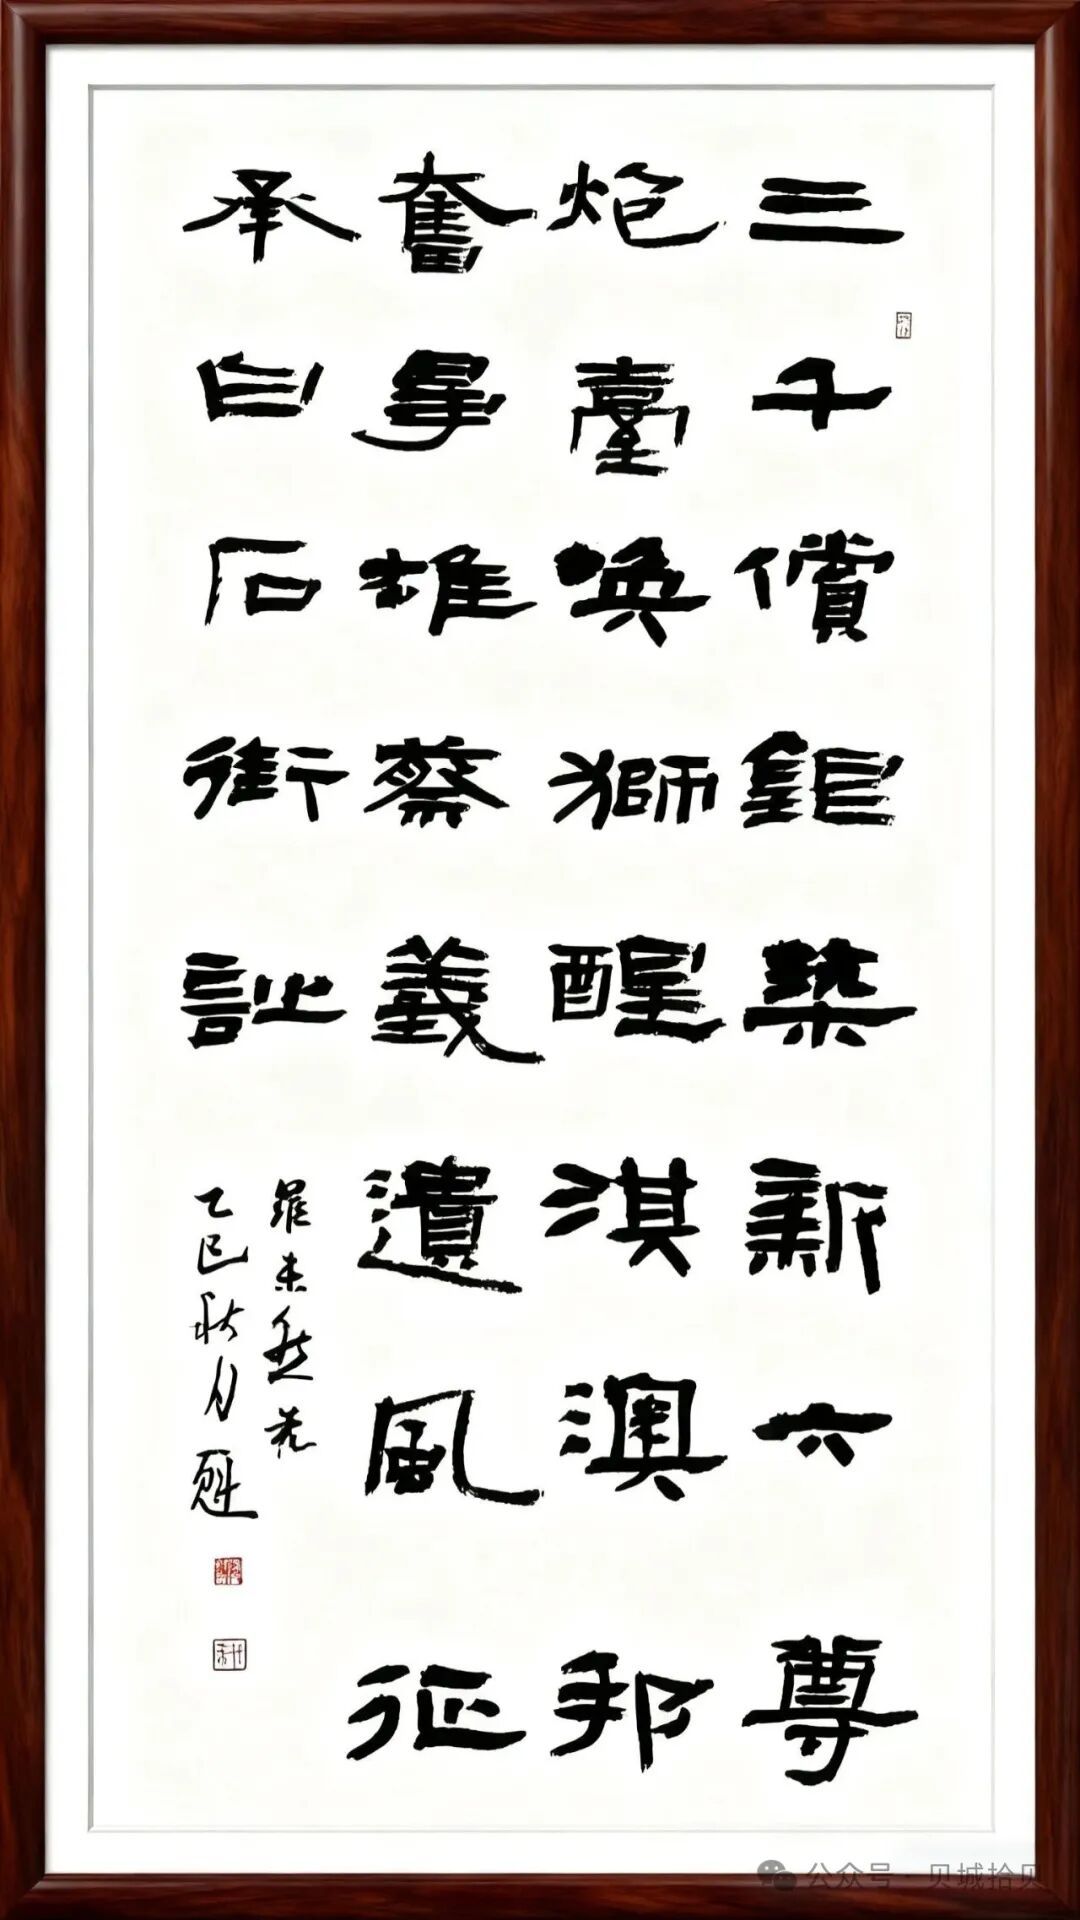 三千償鉅築新六尊
炮臺喚獅醒淇澳邦
奮雄蔡義遺風征
承白石街
乙巳秋月
公众号·贝城拾贝